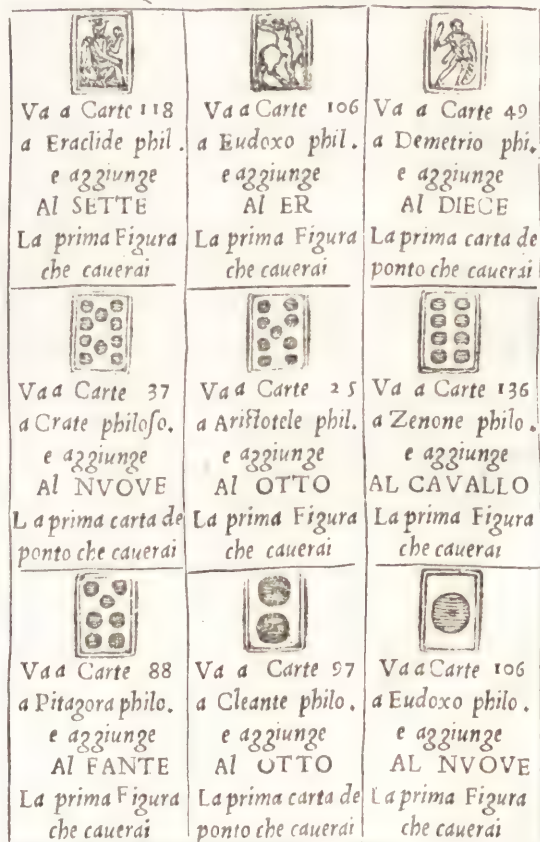 Va a Carte 118
a Eraclide phil.
e aggiunge
Al SETTE
La prima Figura
che cauerai
Va a Carte 106
a Eudoxo phil.
e aggiunge
Al ER
La prima Figura
che cauerai
Va a Carte 49
a Demetrio phi.
e aggiunge
Al DIECE
La prima carta de
ponto che cauerai
Va a Carte 37
a Crate philoſo.
e aggiunge
Al NVOVE
La prima carta de
ponto che cauerai
Va a Carte 25
a Ariſtotele phil.
e aggiunge
Al OTTO
La prima Figura
che cauerai
Va a Carte 136
a Zenone philo.
e aggiunge
AL CAVALLO
La prima Figura
che cauerai
Va a Carte 88
a Pitagora philo.
e aggiunge
Al FANTE
La prima Figura
che cauerai
Va a Carte 97
a Cleante philo.
e aggiunge
Al OTTO
La prima carta de
ponto che cauerai
Va a Carte 106
a Eudoxo philo.
e aggiunge
AL NVOVE
La prima Figura
che cauerai